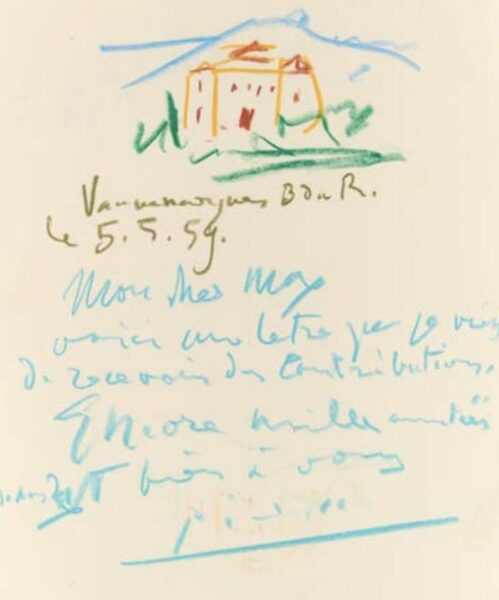 Vauvenargues B du R.
le 5.5.59.
Mon cher Max
voici une letre que je viens
de recevoir des Contributions.
Encore mille amitiés
et bien à vous
Picasso